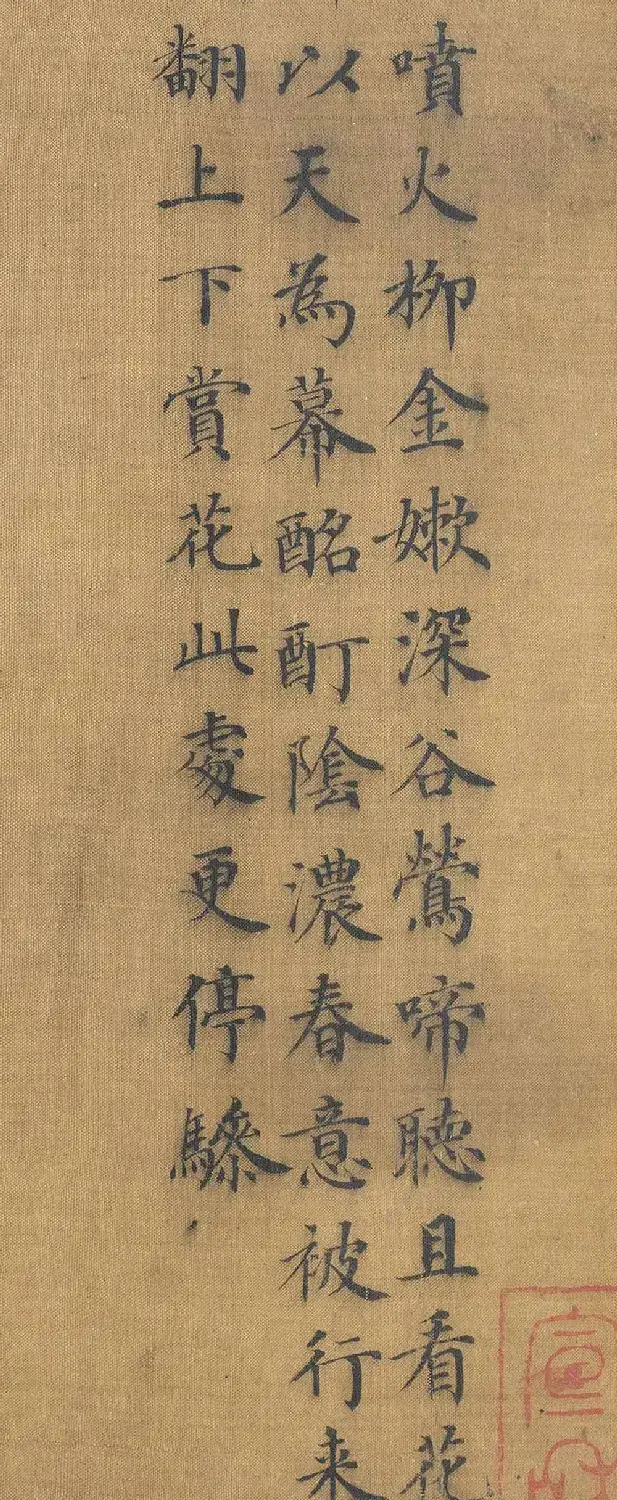 噴火柳金嫩深谷鶯啼聽且看花
以天為幕酩酊陰濃春意被行来
翻上下賞花此處更停驂